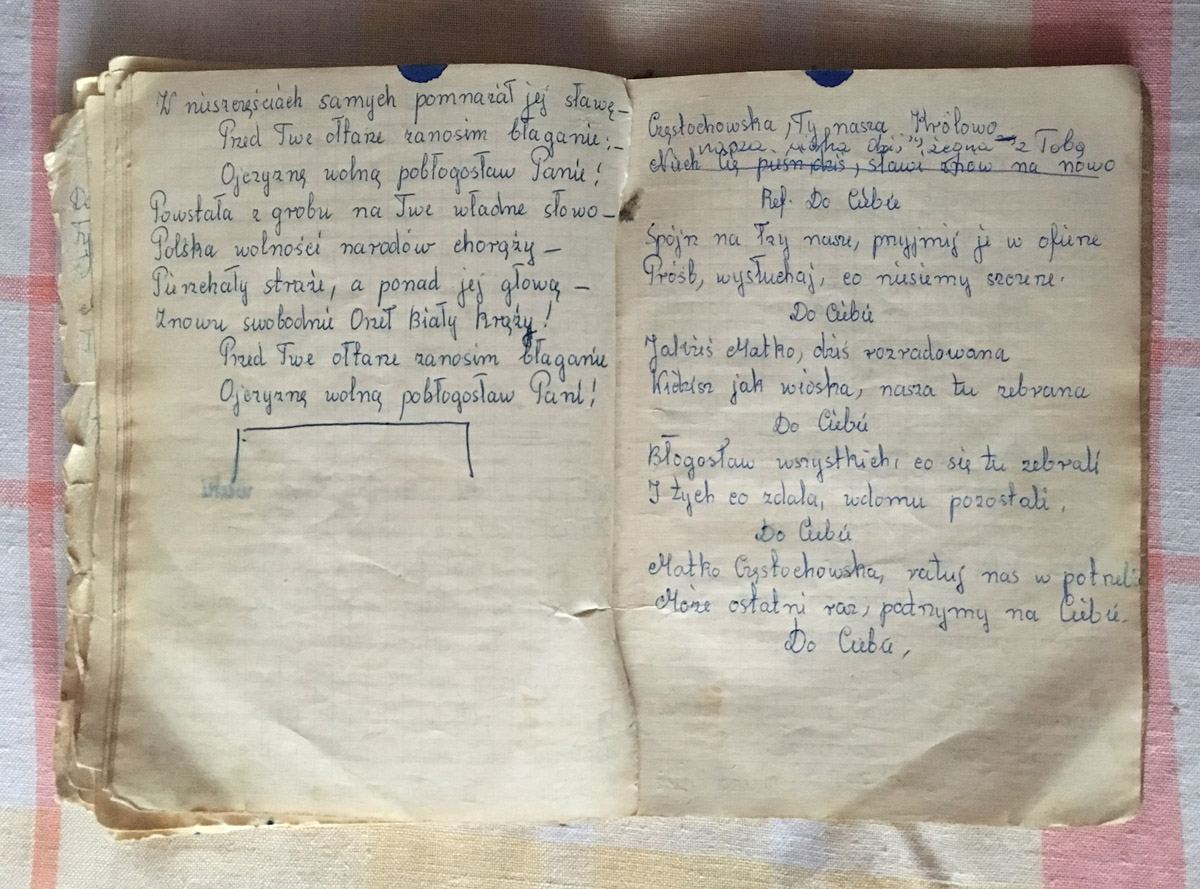 W nieszczęściach samych pomnażał jej sławę –
Przed Twe ołtarze zanosim błaganie:–
Ojczyznę wolną pobłogosław Panie!
Powstała z grobu na Twe władne słowo –
Polska wolności narodów chorąży –
Pierzchały straże, a ponad jej głową –
Znowu swobodnie Orzeł Biały krąży!
Przed Twe ołtarze zanosim błaganie
Ojczyznę wolną pobłogosław Panie!
Częstochowska, Ty nasza Królowo
nasza wioska dziś, żegna się z Tobą
Niech Cię pieśń dziś, sławi znów na nowo
Ref. Do Ciebie
Spójrz na łzy nasze, przyjmij je w ofierze
Próśb, wysłuchaj, co niesiemy szczerze.
Do Ciebie
Jakżeś Matko, dziś rozradowana
Widzisz jak wioska, nasza tu zebrana
Do Ciebie
Błogosław wszystkich, co się tu zebrali
I tych co zdala, wdomu pozostali.
Do Ciebie
Matko Częstochowska, ratuj nas w potrzebie
Może ostatni raz, patrzymy na Ciebie.
Do Ciebie,